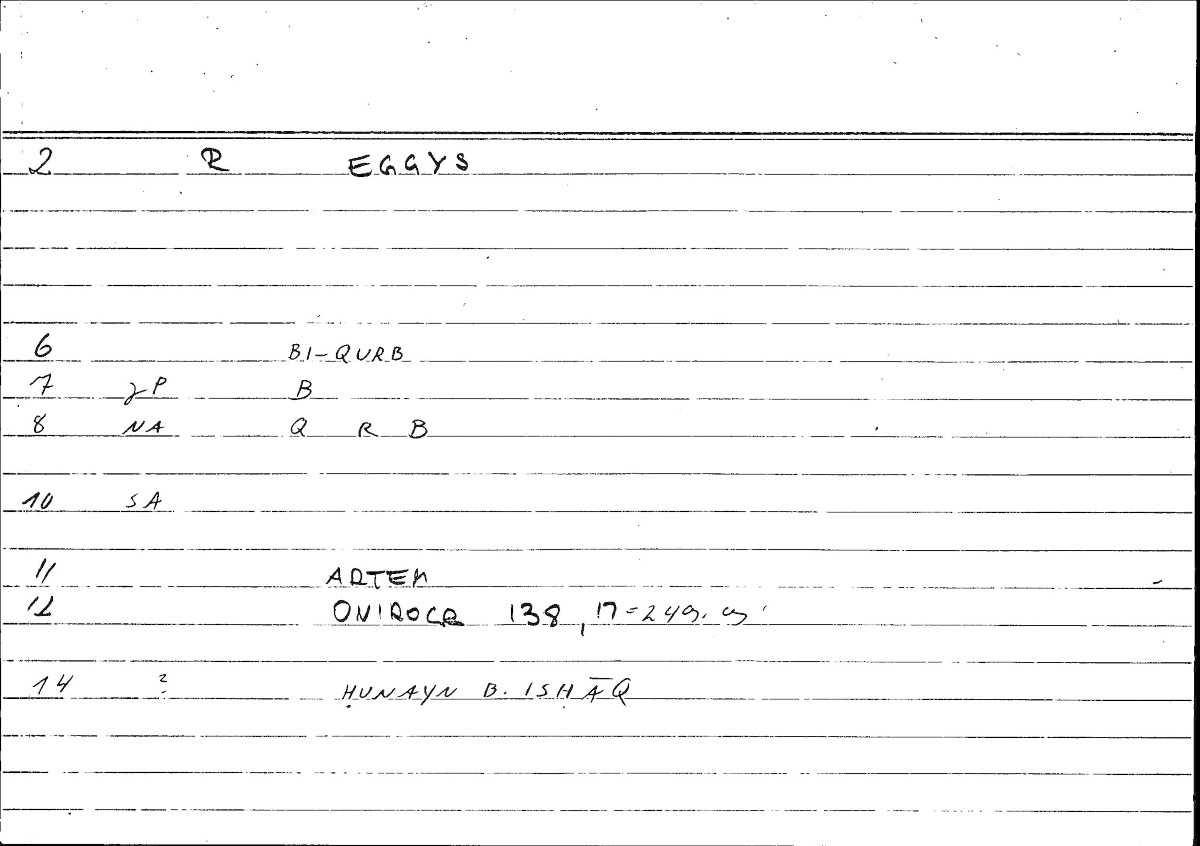 2 R EGGYS
6 BI-QURB
7 γP B
8 NA Q R B
10 SA
11 ARTEM
12 ONIROCR 138, 17 = 249,
14 ? ḤUNAYN B. ISḤĀQ